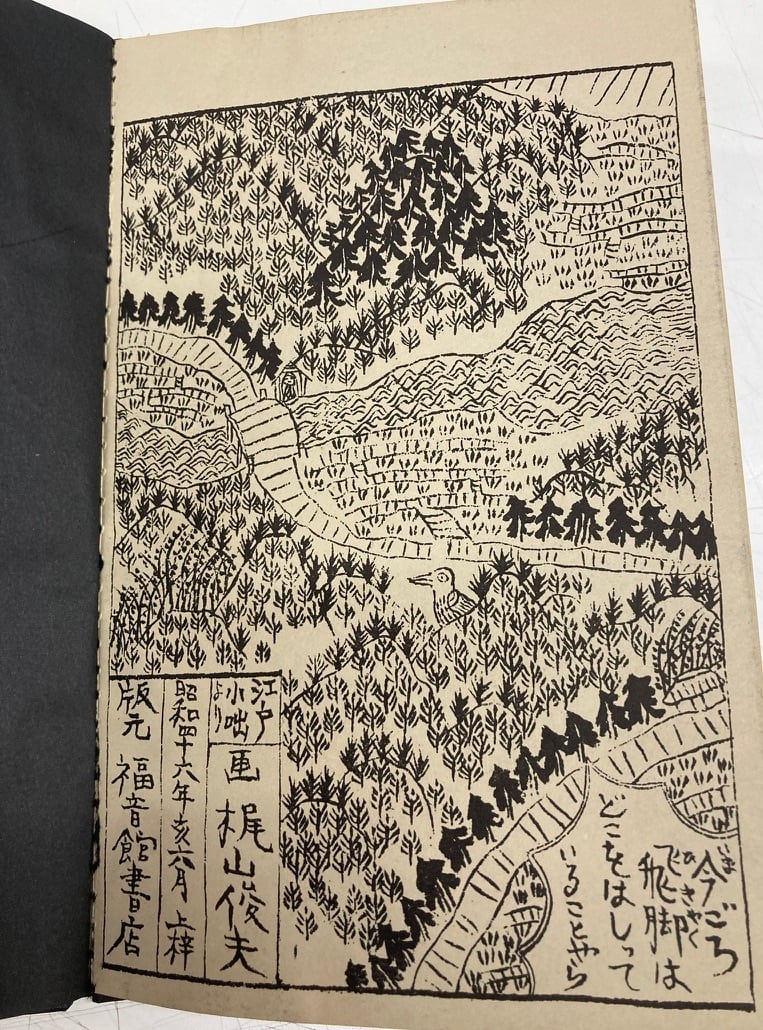 今ごろ
いま
飛脚は
ひきやく
どこをはしって
いることやら
江戸
小咄
より
画 梶山俊夫
昭和四十六年亥六月 上梓
版元 福音館書店